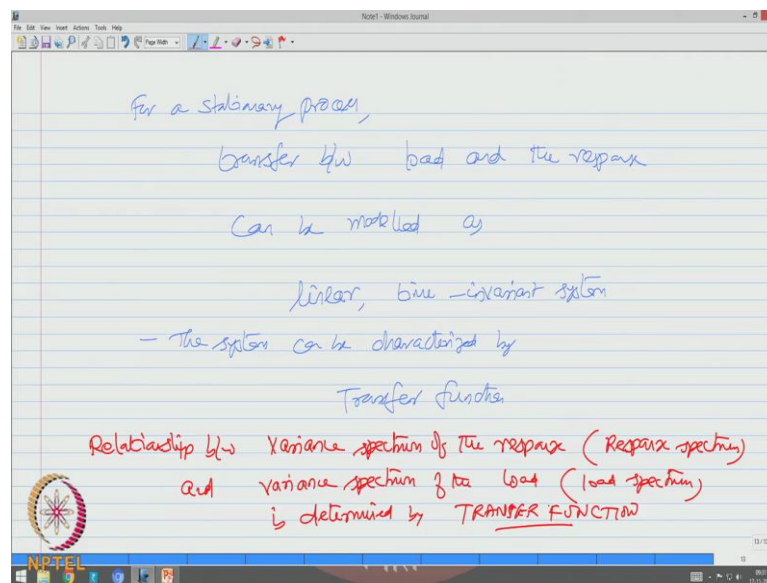 Note1 - Windows Journal
File Edit View Insert Actions Tools Help
Page Width
For a stationary process,
transfer b/w load and the response
Can be modelled as
linear, time-invariant system
- The system can be characterized by
Transfer function
Relationship b/w Variance spectrum of the response (Response spectrum)
and variance spectrum of the load (load spectrum)
is determined by TRANSFER FUNCTION
NPTEL